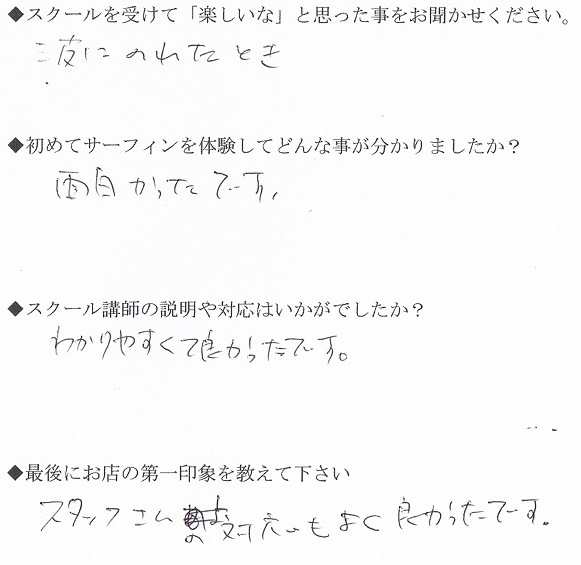 ◆スクールを受けて「楽しいな」と思った事をお聞かせください。
波にのれたとき
◆初めてサーフィンを体験してどんな事が分かりましたか？
面白かったです。
◆スクール講師の説明や対応はいかがでしたか？
わかりやすくて良かったです。
◆最後にお店の第一印象を教えて下さい
スタッフさんの対応もよく良かったです。